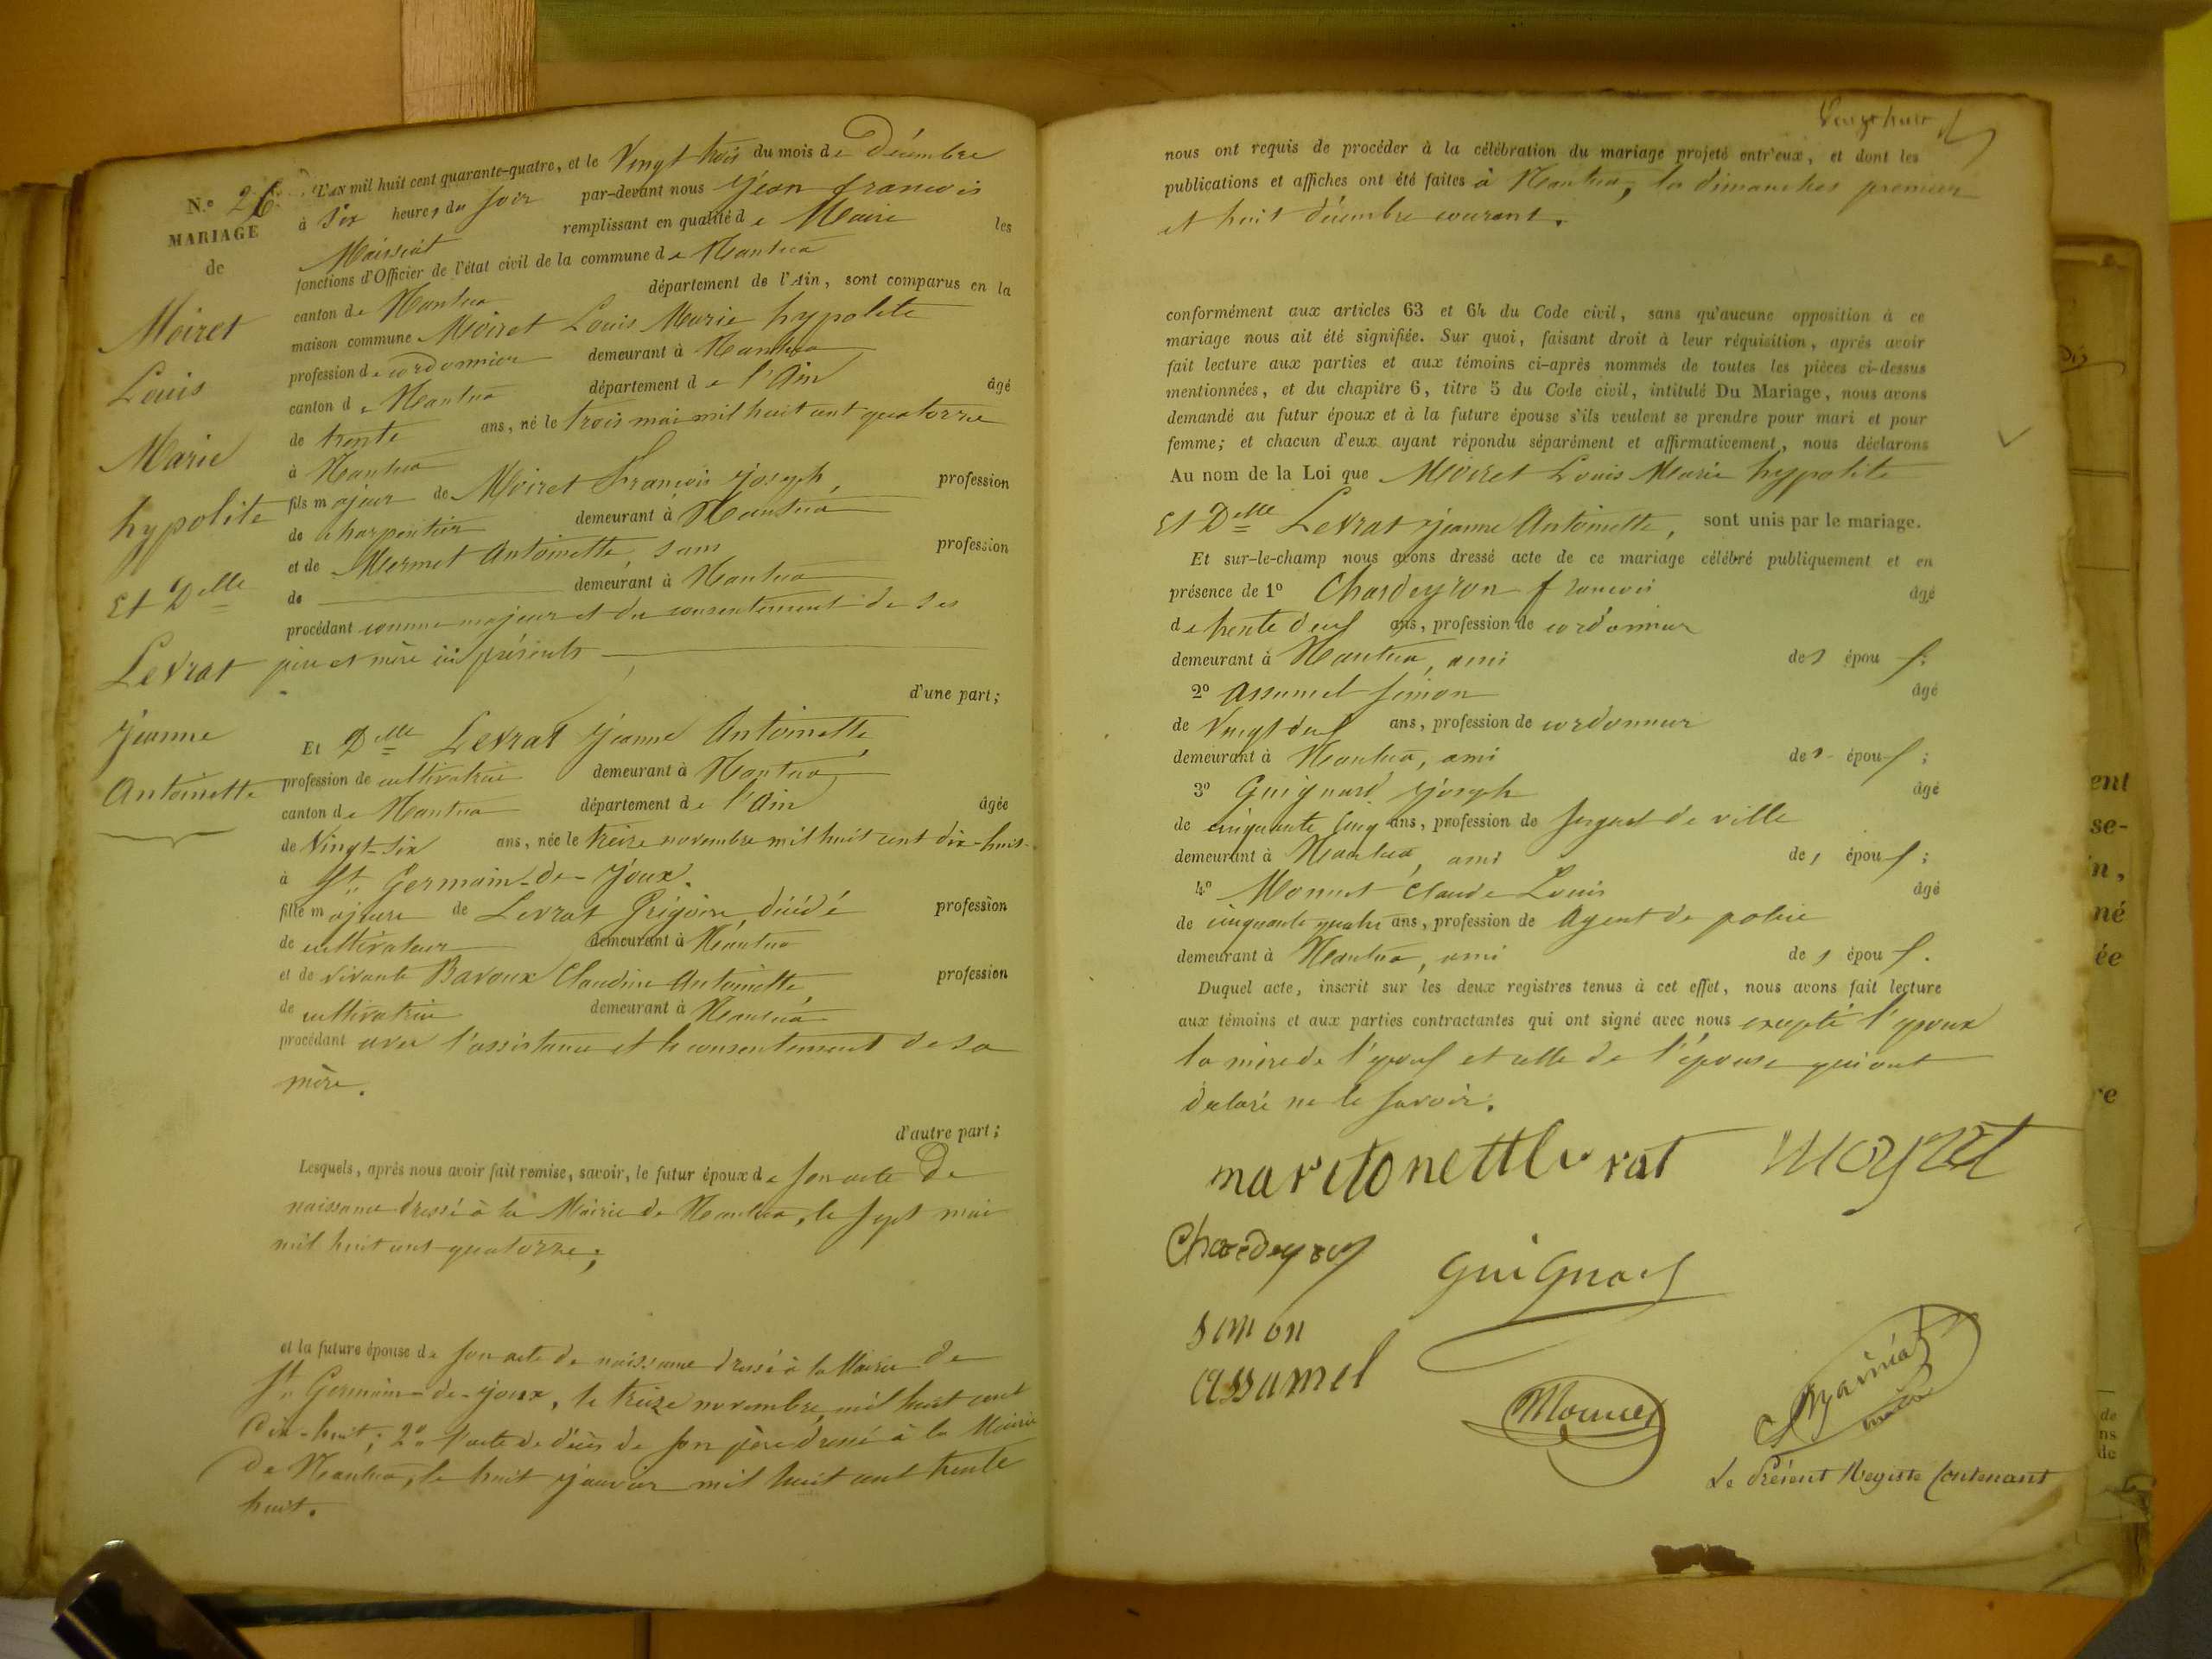 N.o 26
MARIAGE
de
Moiret
Louis
Marie
hypolite
Et Delle
Levrat
jeanne
Antoinette
L'AN mil huit cent quarante-quatre, et le Vingt trois du mois de Décembre
à Six heures du soir par-devant nous jean francois
Maissiat remplissant en qualité de Maire les
fonctions d'Officier de l'état civil de la commune de Nantua
canton de Nantua département de l'Ain, sont comparus en la
maison commune Moiret Louis Marie hypolite
profession de cordonnier demeurant à Nantua
canton de Nantua département de l'Ain âgé
de trente ans, né le trois mai mil huit cent quatorze
à Nantua
fils majeur de Moiret François joseph, profession
de charpentier demeurant à Nantua
et de Mermet Antoinette, sans profession
de demeurant à Nantua
procédant comme majeur et du consentement de ses
père et mère ici présents
d'une part;
Et Delle Levrat jeanne Antoinette,
profession de cultivatrice demeurant à Nantua,
canton de Nantua département de l'Ain âgée
de Vingt-six ans, née le treize novembre mil huit cent dix-huit
à St Germain-de-joux.
fille majeure de Levrat Grégoire décédé profession
de cultivateur demeurant à Nantua
et de vivante Bavoux Claudine Antoinette, profession
de cultivatrice demeurant à Nantua
procédant avec l'assistance et le consentement de sa
mère.
d'autre part;
Lesquels, après nous avoir fait remise, savoir, le futur époux de son acte De
naissance dressé à la Mairie de Nantua, le sept mai
mil huit cent quatorze;
et la future épouse de son acte de naissance dressé à la Mairie de
St Germain-de-joux, le treize novembre mil huit cent
dix-huit; 2o l'acte de décès de son père dressé à la Mairie
de Nantua, le huit janvier mil huit cent trente
huit.
Vingt huit
nous ont requis de procéder à la célébration du mariage projeté entr'eux, et dont les
publications et affiches ont été faites à Nantua, les dimanches premier
et huit décembre courant.
conformément aux articles 63 et 64 du Code civil, sans qu'aucune opposition à ce
mariage nous ait été signifiée. Sur quoi, faisant droit à leur réquisition, après avoir
fait lecture aux parties et aux témoins ci-après nommés de toutes les pièces ci-dessus
mentionnées, et du chapitre 6, titre 5 du Code civil, intitulé Du Mariage, nous avons
demandé au futur époux et à la future épouse s'ils veulent se prendre pour mari et pour
femme; et chacun d'eux ayant répondu séparément et affirmativement, nous déclarons
Au nom de la Loi que Moiret Louis Marie hypolite
Et Delle Levrat jeanne Antoinette, sont unis par le mariage.
Et sur-le-champ nous avons dressé acte de ce mariage célébré publiquement et en
présence de 1o Chardeyron francois âgé
de trente deux ans, profession de cordonnier
demeurant à Nantua, ami des époux;
2o Assumel simon âgé
de Vingt deux ans, profession de cordonnier
demeurant à Nantua, ami des époux;
3o Guignard joseph âgé
de cinquante cinq ans, profession de sergent de ville
demeurant à Nantua, ami des époux;
4o Monnet Claude Louis âgé
de cinquante quatre ans, profession de Agent de police
demeurant à Nantua, ami des époux.
Duquel acte, inscrit sur les deux registres tenus à cet effet, nous avons fait lecture
aux témoins et aux parties contractantes qui ont signé avec nous excepté l'époux
la mère de l'époux et celle de l'épouse qui ont
déclaré ne le savoir.
maritonettlevrat Moyret
Chardeyron Guignard
simon
assumel
Monnet
Maissiat
maire
Le Présent Registre Contenant
ent
se-
n,
né
ée
re
de
ns
de